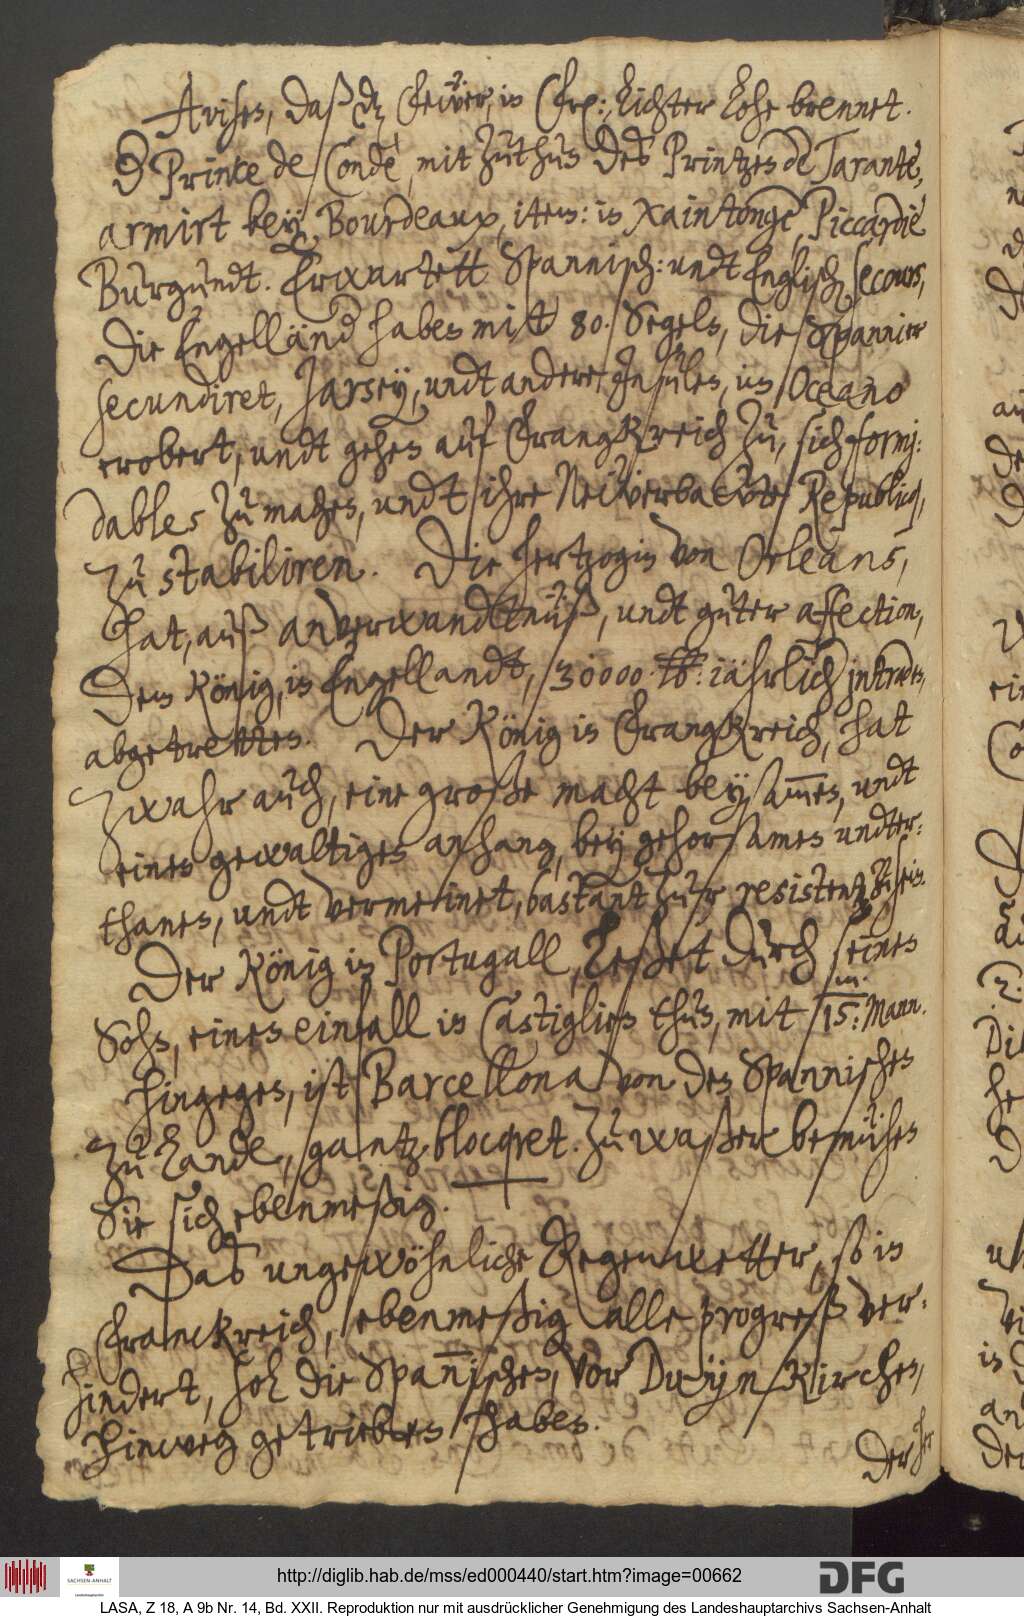 Avisen, daß dz Feüer, in Fr:, lichter Lohe brennet.
D Prince de Condè, mit zuthun des Printzen de Tarante,
armirt bey Bourdeaux, item: in Xaintonge, Piccardie
Burgundt. Erwartett Spannisch: undt Englisch secours,
Die Engelländ haben mitt 80. Segeln, die Spannier
secundiret, Jarsey, undt andere Insulen, in Oceano
erobert, undt gehen auf Frangkreich zu, sich formi:
dablen zu machen, undt ihre Neẅerbawte Republicq,
zu stabiliren. Die Hertzogin von Orleans,
hat, auß anverwandtnüß, undt guter affection,
dem König, in Engellandt, 30000 {tt}: iährlich intraden,
abgetretten. Der König in Frangkreich, hat
zwahr auch, eine große macht beysam̅en, undt
einen gewaltigen anhang, bey gehorsamen undter:
thanen, undt vermeinet, bastant zur resistentz zu sein.
Der König in Portugall, leßet durch seinen
Sohn, einen einfall in Castiglien thun, mit 15: m. Mann.
Hingegen, ist Barcellona von den Spannischen
zu Lande, gantz blocqret. Zu waßer bemühen
Sie sich ebenmeßig.
Das ungewöhnliche Regenwetter, so in
Franckreich, ebenmeßig alle progreß ver:
hindert, sol die Span̅ischen, vor Duynkirchen,
hinweg getrieben haben.
Der her
http://diglib.hab.de/mss/ed000440/start.htm?image=00662
SACHSEN-ANHALT
DFG
LASA, Z 18, A 9b Nr. 14, Bd. XXII. Reproduktion nur mit ausdrücklicher Genehmigung des Landeshauptarchivs Sachsen-Anhalt